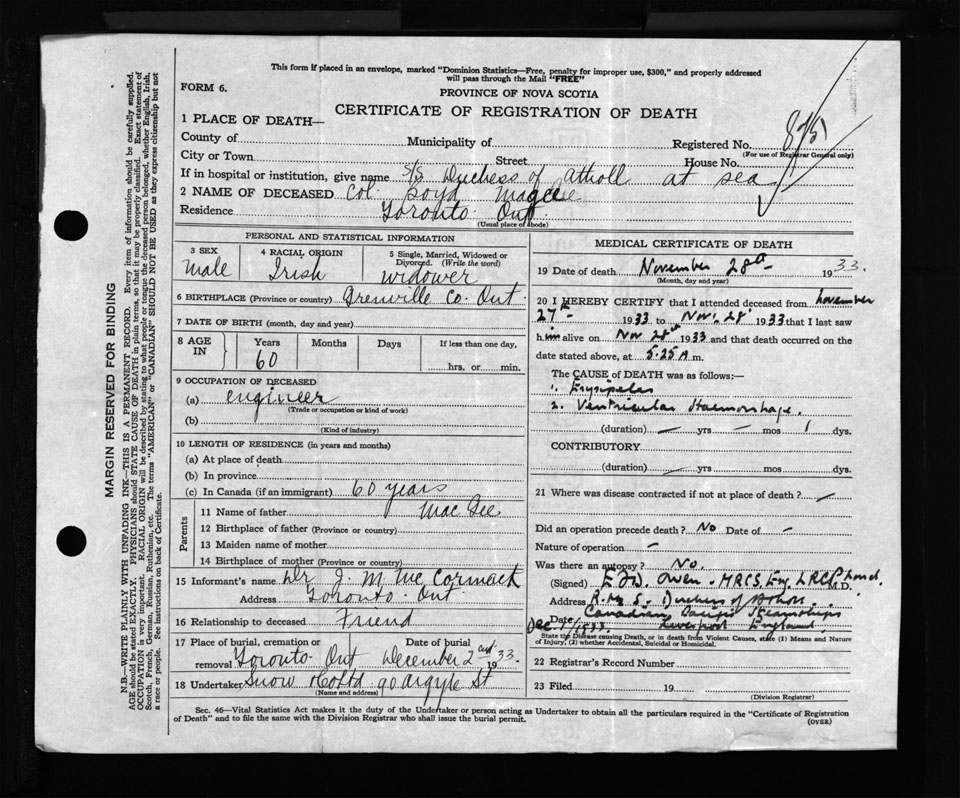 This form if placed in an envelope, marked "Dominion Statistics—Free, penalty for improper use, $300," and properly addressed
will pass through the Mail "FREE"
FORM 6.
PROVINCE OF NOVA SCOTIA
CERTIFICATE OF REGISTRATION OF DEATH
1 PLACE OF DEATH—
County of Municipality of Registered No.
(For use of Registrar General only)
City or Town Street House No.
If in hospital or institution, give name S/S Duchess of Atholl at sea
2 NAME OF DECEASED Col. Boyd Magee
Residence Toronto Ont
(Usual place of abode)
PERSONAL AND STATISTICAL INFORMATION
3 SEX 4 RACIAL ORIGIN 5 Single, Married, Widowed or
Divorced. (Write the word)
Male Irish Widower
6 BIRTHPLACE (Province or country) Grenville Co. Ont
7 DATE OF BIRTH (month, day and year)
8 AGE IN Years Months Days If less than one day,
60 hrs. or min.
9 OCCUPATION OF DECEASED
(a) engineer
(Trade or occupation or kind of work)
(b)
(Kind of industry)
10 LENGTH OF RESIDENCE (in years and months)
(a) At place of death
(b) In province
(c) In Canada (if an immigrant) 60 years
Parents
11 Name of father Mac Gee
12 Birthplace of father (Province or country)
13 Maiden name of mother
14 Birthplace of mother (Province or country)
15 Informant's name Dr J. M. McCormack
Address Toronto Ont
16 Relationship to deceased Friend
17 Place of burial, cremation or Date of burial
removal Toronto Ont December 2nd 1933.
18 Undertaker Snow & Co Ltd 90 Argyle St
(Name and address)
MEDICAL CERTIFICATE OF DEATH
19 Date of death November 28th 1933.
(Month, day and year)
20 I HEREBY CERTIFY that I attended deceased from November
27th 1933 to Nov. 28 1933 that I last saw
him alive on Nov 28th 1933 and that death occurred on the
date stated above, at 5.25 A m.
The CAUSE OF DEATH was as follows:—
1. Erysipelas
2. Ventricular Haemorrhage.
(duration) — yrs — mos 1 dys.
CONTRIBUTORY
(duration) yrs mos dys.
21 Where was disease contracted if not at place of death?
Did an operation precede death? No Date of —
Nature of operation —
Was there an autopsy? No.
(Signed) Owen. MRCS. Eng. LRCP Lond. M.D.
Address R.M.S. Duchess of Atholl
Canadian Pacific Steamships
Date Dec. 1/1933. Liverpool England
State the Disease causing Death, or in death from Violent Causes, state (1) Means and Nature
of Injury, (2) whether Accidental, Suicidal or Homicidal.
22 Registrar's Record Number
23 Filed 19
(Division Registrar)
Sec. 46—Vital Statistics Act makes it the duty of the Undertaker or person acting as Undertaker to obtain all the particulars required in the "Certificate of Registration
of Death" and to file the same with the Division Registrar who shall issue the burial permit.
(OVER)
MARGIN RESERVED FOR BINDING
N.B.—WRITE PLAINLY WITH UNFADING INK—THIS IS A PERMANENT RECORD. Every item of information should be carefully supplied.
AGE should be stated EXACTLY. PHYSICIANS should STATE CAUSE OF DEATH in plain terms, so that it may be properly classified. Exact statement of
OCCUPATION is very important. RACIAL ORIGIN will be described by stating to what people or tongue the deceased person belonged, whether English, Irish,
Scotch, French, German, Russian, Ruthenian, etc. The terms "AMERICAN" or "CANADIAN" SHOULD NOT BE USED as they express citizenship but not
a race or people. See instructions on back of Certificate.